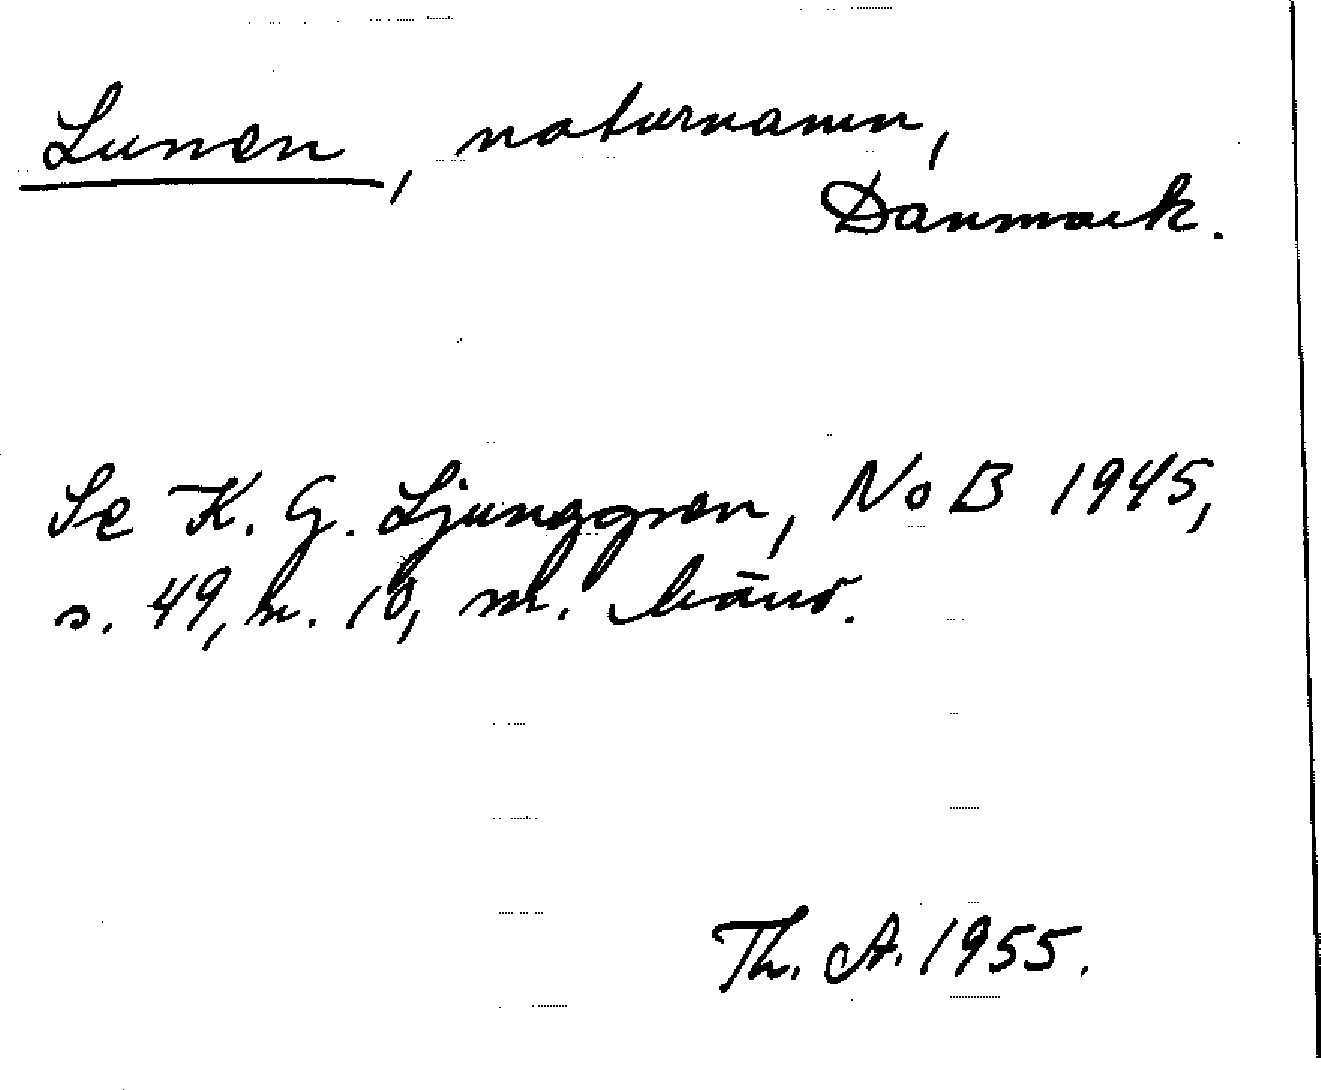 Lunen, naturnamn,
Danmark.
Se K. G. Ljunggren, NoB 1945,
s. 49, n. 10, m. hänv.
Th. A. 1955.